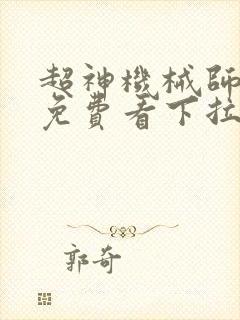 超神機械師
免費看下拉
郭奇